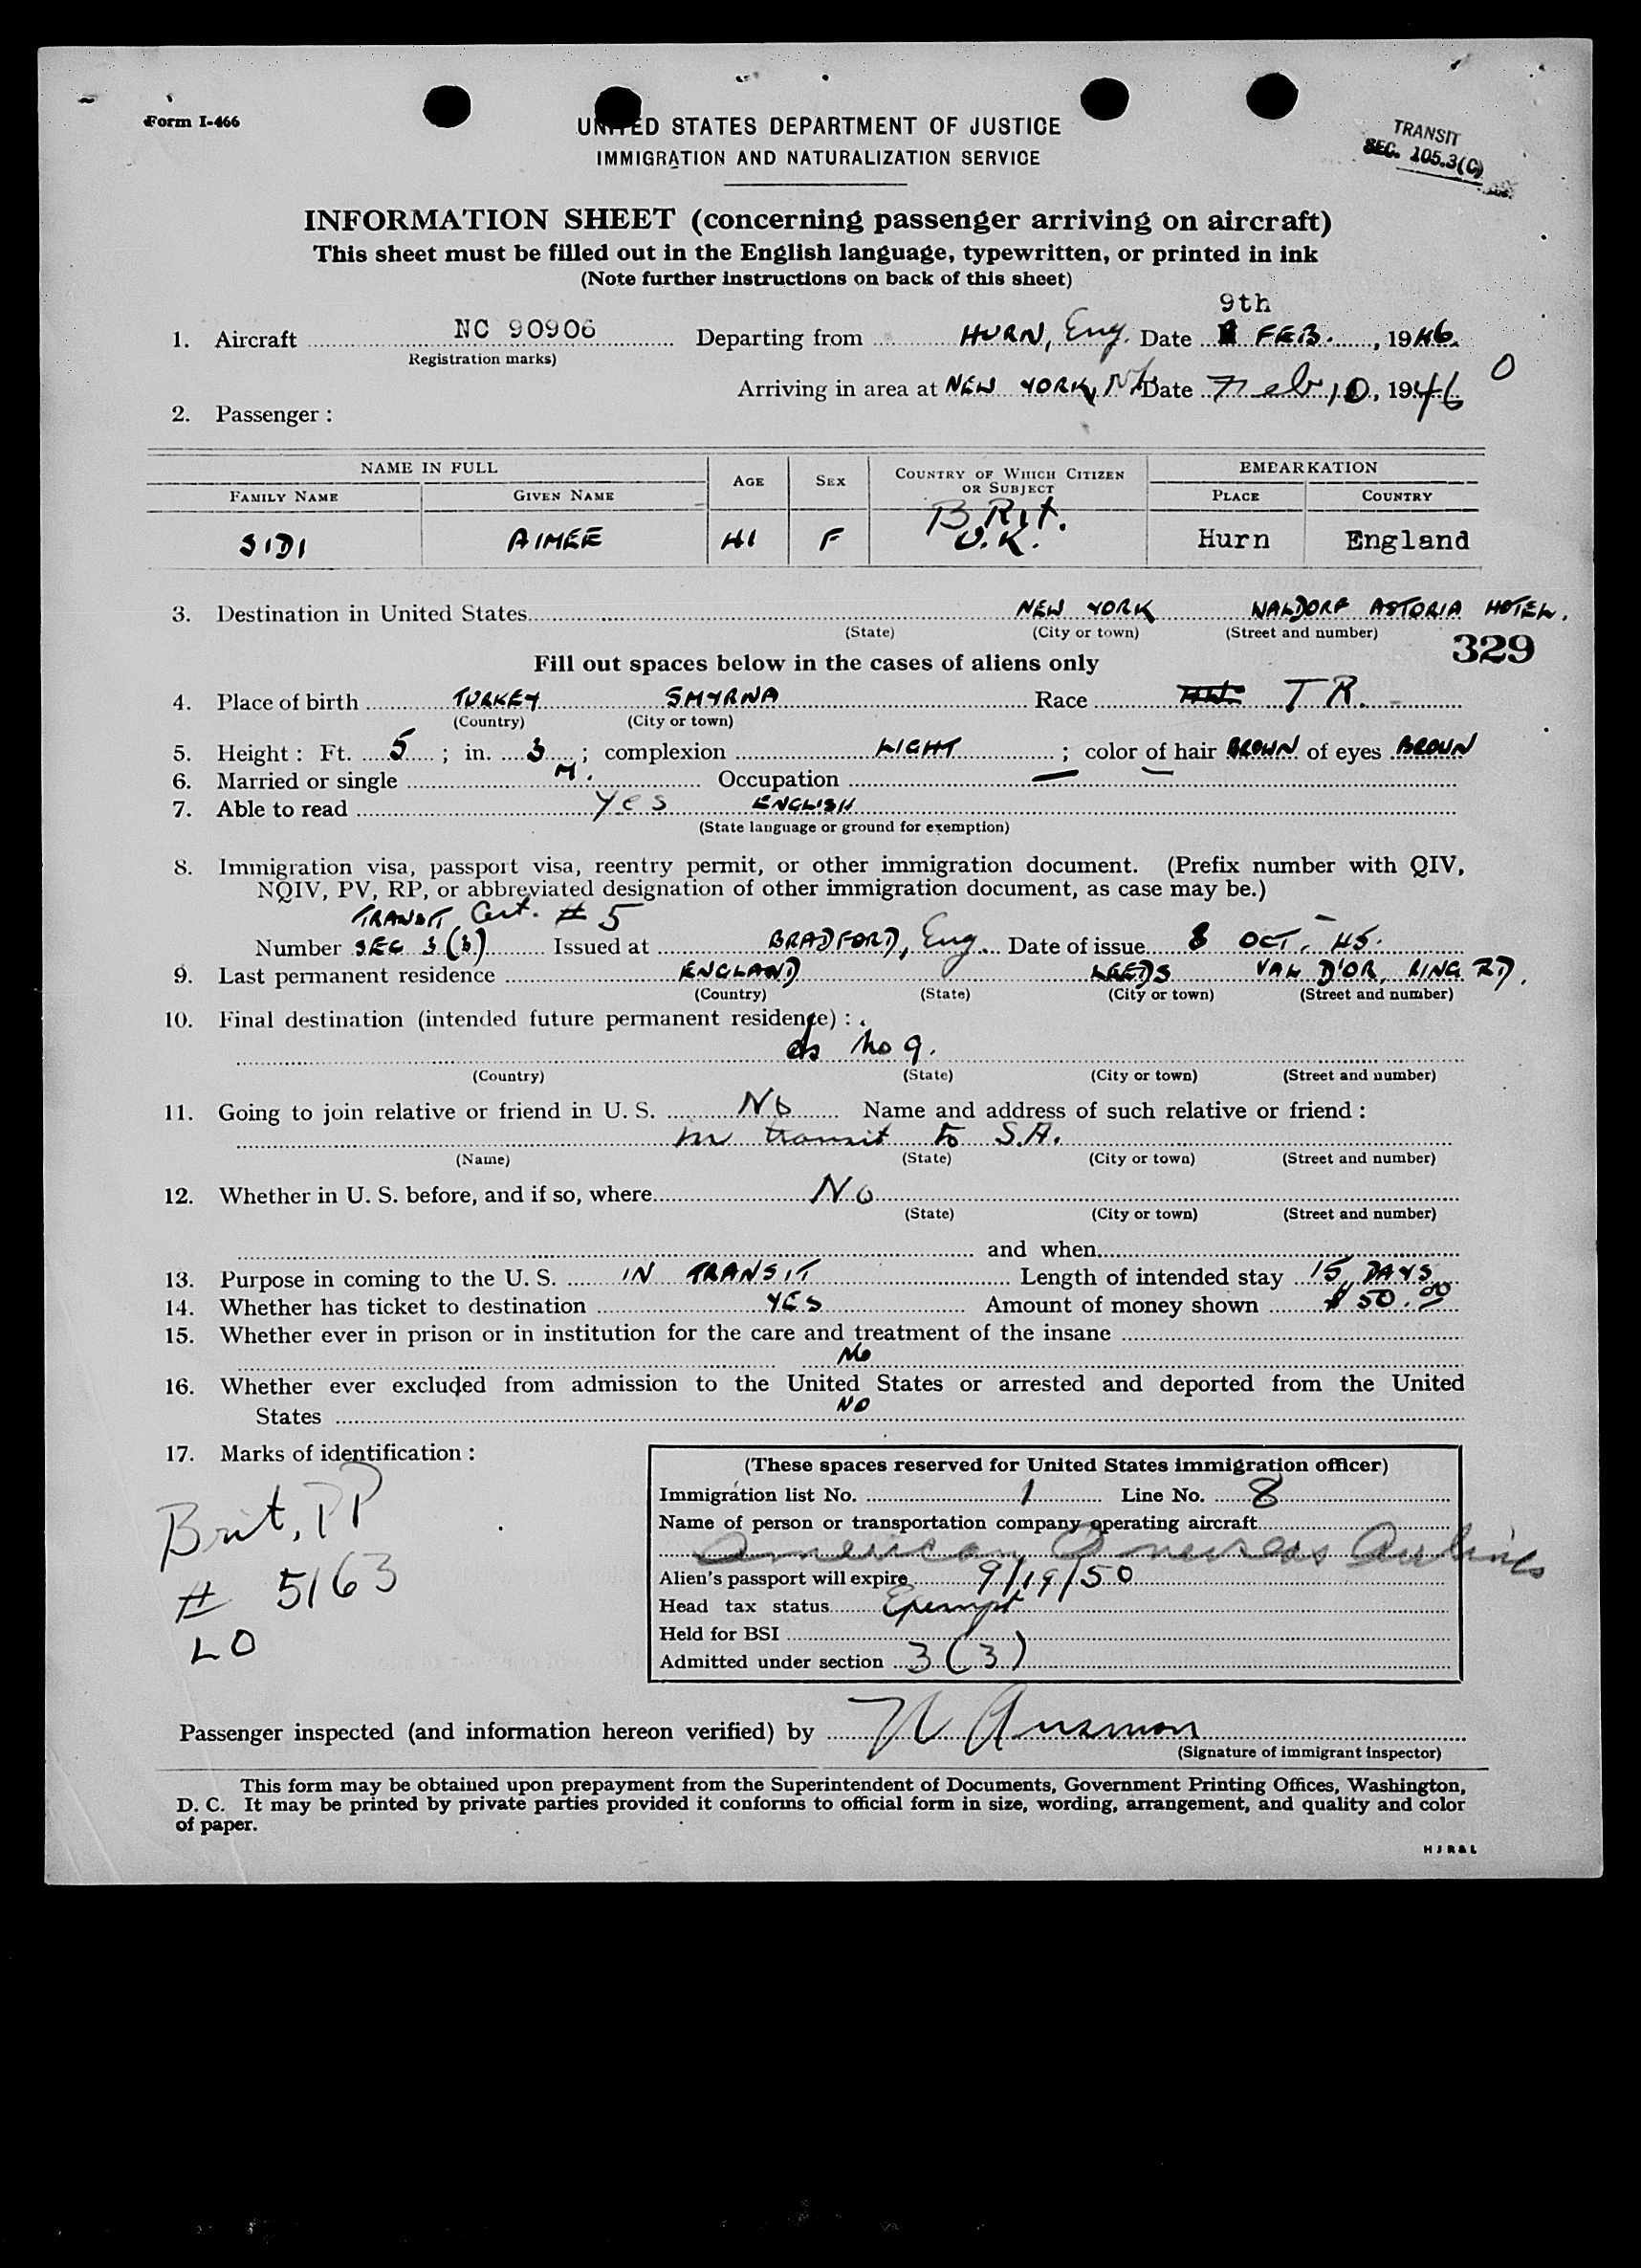 Form I-466
UNITED STATES DEPARTMENT OF JUSTICE
IMMIGRATION AND NATURALIZATION SERVICE
TRANSIT
SEC. 105.3(C)
INFORMATION SHEET (concerning passenger arriving on aircraft)
This sheet must be filled out in the English language, typewritten, or printed in ink
(Note further instructions on back of this sheet)
9th
1. Aircraft NC 90906 Departing from HURN, Eng. Date FEB. , 1946.
(Registration marks)
Arriving in area at NEW YORK, NY Date Feb 10, 1946 0
2. Passenger :
NAME IN FULL AGE SEX COUNTRY OF WHICH CITIZEN OR SUBJECT EMBARKATION
FAMILY NAME GIVEN NAME PLACE COUNTRY
BRit.
SIDI AIMEE 41 F U.K. Hurn England
3. Destination in United States NEW YORK WALDORF ASTORIA HOTEL.
(State) (City or town) (Street and number)
329
Fill out spaces below in the cases of aliens only
4. Place of birth TURKEY SMYRNA Race T R.
(Country) (City or town)
5. Height : Ft. 5 ; in. 3 ; complexion LIGHT ; color of hair BROWN of eyes BROWN
6. Married or single M. Occupation —
7. Able to read Yes ENGLISH
(State language or ground for exemption)
8. Immigration visa, passport visa, reentry permit, or other immigration document. (Prefix number with QIV,
NQIV, PV, RP, or abbreviated designation of other immigration document, as case may be.)
TRANSIT Cert. # 5
Number SEC 3 (3) Issued at BRADFORD, Eng. Date of issue 8 OCT. 45.
9. Last permanent residence ENGLAND LEEDS VAL D'OR, RING RD.
(Country) (State) (City or town) (Street and number)
10. Final destination (intended future permanent residence) :
as No 9.
(Country) (State) (City or town) (Street and number)
11. Going to join relative or friend in U. S. No Name and address of such relative or friend :
in transit to S.A.
(Name) (State) (City or town) (Street and number)
12. Whether in U. S. before, and if so, where No
(State) (City or town) (Street and number)
and when
13. Purpose in coming to the U. S. IN TRANSIT Length of intended stay 15 DAYS
14. Whether has ticket to destination YES Amount of money shown $ 50.00
15. Whether ever in prison or in institution for the care and treatment of the insane
No
16. Whether ever excluded from admission to the United States or arrested and deported from the United
States NO
17. Marks of identification :
Brit. PP
# 5163
LO
(These spaces reserved for United States immigration officer)
Immigration list No. 1 Line No. 8
Name of person or transportation company operating aircraft
American Overseas Airlines
Alien's passport will expire 9/19/50
Head tax status Exempt
Held for BSI
Admitted under section 3 (3)
Passenger inspected (and information hereon verified) by
(Signature of immigrant inspector)
This form may be obtained upon prepayment from the Superintendent of Documents, Government Printing Offices, Washington,
D. C. It may be printed by private parties provided it conforms to official form in size, wording, arrangement, and quality and color
of paper.
H J R & L